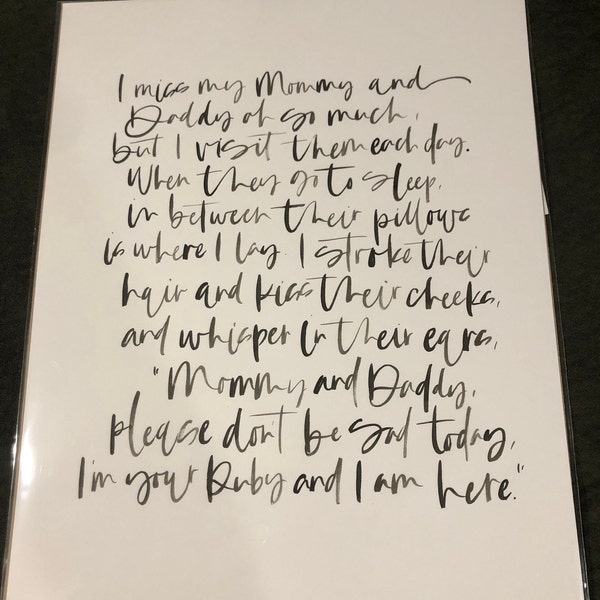 I miss my Mommy and
Daddy oh so much,
but I visit them each day.
When they go to sleep,
in between their pillows
is where I lay. I stroke their
hair and kiss their cheeks,
and whisper in their ears,
"Mommy and Daddy,
please don't be sad today,
I'm your Ruby and I am here."